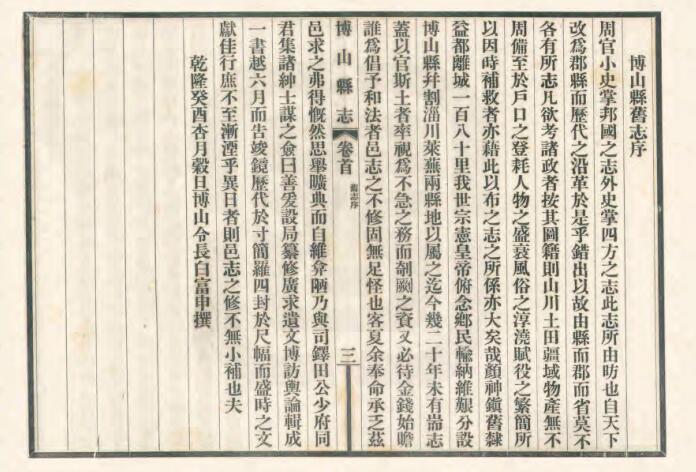 博山縣舊志序
周官小史掌邦國之志外史掌四方之志此志所由昉也自天下
改爲郡縣而歷代之沿革於是乎錯出以故由縣而郡而省莫不
各有所志凡欲考諸政者按其圖籍則山川土田疆域物產無不
周備至於戶口之登耗人物之盛衰風俗之淳澆賦役之繁簡所
以因時補救者亦藉此以布之志之所係亦大矣哉顏神鎭舊隸
益都離城一百八十里我世宗憲皇帝俯念鄉民輸納維艱分設
博山縣幷割淄川萊蕪兩縣地以屬之迄今幾二十年未有耑志
蓋以官斯土者率視爲不急之務而剞劂之資又必待金錢始贍
誰爲倡予和法者邑志之不修固無足怪也客夏余奉命承乏茲
博山縣志
卷首
舊志序
三
邑求之弗得慨然思舉曠典而自維弇陋乃與司鐸田公少府同
君集諸紳士謀之僉曰善爰設局纂修廣求遺文博訪輿論輯成
一書越六月而告竣鏡歷代於寸簡羅四封於尺幅而盛時之文
獻佳行庶不至漸湮乎異日者則邑志之修不無小補也夫
乾隆癸酉杏月穀旦博山令長白富申撰